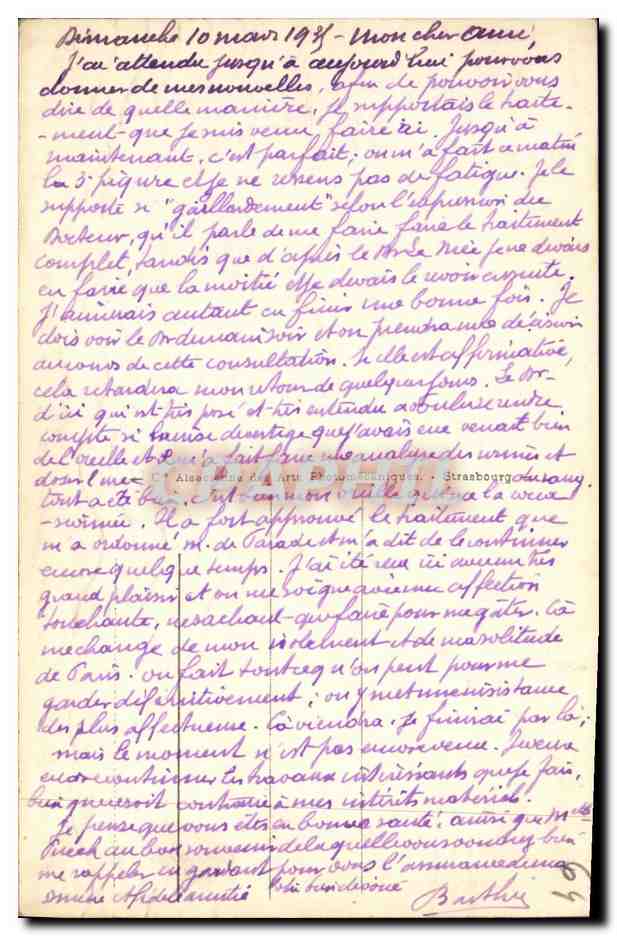 Dimanche 10 mars 1935 - Mon cher ami,
J'ai attendu jusqu'à aujourd'hui pour vous
donner de mes nouvelles, afin de pouvoir vous
dire de quelle manière, je supportais le traite-
-ment que je suis venu faire ici. Jusqu'à
maintenant, c'est parfait; on m'a fait ce matin
la 3e piqure et je ne ressens pas de fatigue. Je le
supporte si "gaillardement" selon l'expression du
Docteur, qu'il parle de me faire faire le traitement
complet, tandis que d'après le je ne devais
en faire que la moitié et je devais le revoir ensuite.
J'aimerais autant en finir une bonne fois. Je
dois voir le Dr demain soir et on prendra une décision
au cours de cette consultation. Si elle est affirmative,
cela retardera mon retour de quelques jours. Le Dr
d'ici qui est très posé et très entendu a voulu se rendre
compte si la crise de vertige que j'avais eue venait bien
de l'oreille et m'a fait faire une analyse des urines et
Cie Alsacienne des Arts Photomécaniques. - Strasbourg
CPAPHIL
doser l'urée du sang.
tout a été bien, c'est bien mon oreille qui me l'a occa-
-sionnée. Il a fort approuvé le traitement que
m'a ordonné M. de Parade et m'a dit de le continuer
encore quelque temps. J'ai été reçu ici avec un très
grand plaisir et on me soigne avec une affection
touchante, ne sachant que faire pour me gâter. Cà
me change de mon isolement et de ma solitude
de Paris. On fait tout ce qu'on peut pour me
garder définitivement; on y met une insistance
des plus affectueuse. Cà viendra. Je finirai par là;
mais le moment n'est pas encore venu. Je veux
encore continuer les travaux intéressants que je fais,
bien que ce soit contraire à mes intérêts matériels.
Je pense que vous êtes en bonne santé, ainsi que Mlle
Puech au bon souvenir de laquelle vous voudrez bien
me rappeler en gardant pour vous l'assurance de ma
sincère et fidèle amitié
votre bien dévoué
Barthé
64